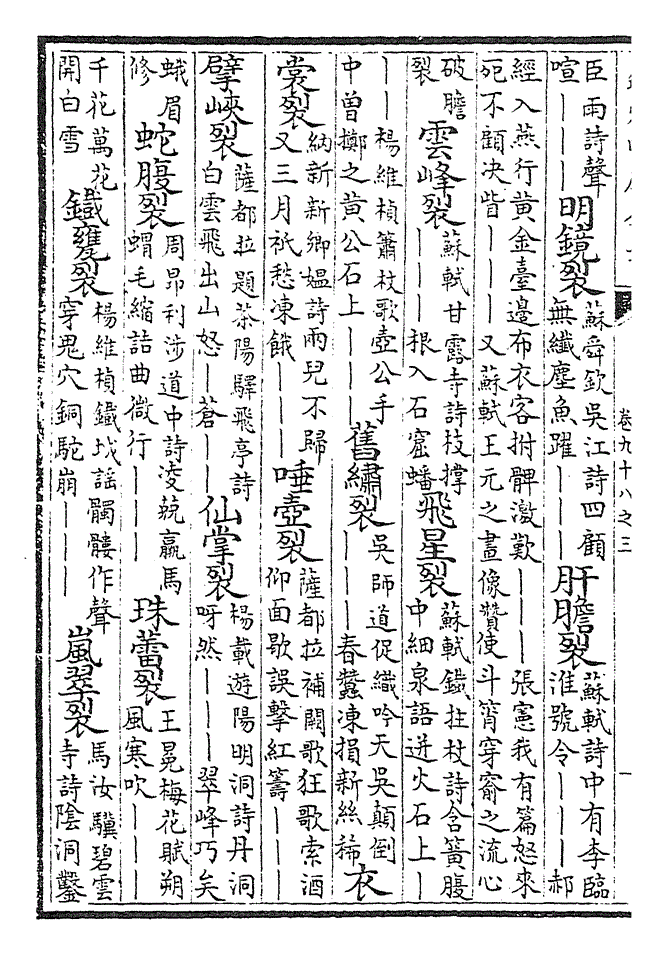 卷九十八之三
臣雨詩聲喧｜｜｜明鏡裂蘇舜欽吳江詩四顧無纖塵魚躍｜｜｜肝膽裂蘇軾詩中有李臨淮號令｜｜｜郝
經入燕行黃金臺邊布衣客拊髀激歎｜｜｜張憲我有篇怒來死不顧决眥｜｜｜又蘇軾王元之畫像贊使斗筲穿窬之流心
破膽裂雲峰裂蘇軾甘露寺詩枝撐｜｜｜根入石窟蟠飛星裂蘇軾鐵拄杖詩含簧腹中細泉語迸火石上｜
｜｜楊維楨簫杖歌壺公手中曾擲之黃公石上｜｜｜舊繡裂吳師道促織吟天吳顛倒｜｜｜春蠶凍損新絲稀衣
裳裂納新新卿媼詩雨兒不歸又三月祇愁凍餓｜｜｜唾壺裂薩都拉補闕歌狂歌索酒仰面歇誤擊紅籌｜｜｜
擘峽裂薩都拉題茶陽驛飛亭詩白雲飛出山怒｜蒼｜｜仙掌裂楊載遊陽明洞詩丹洞呀然｜｜｜翠峰巧矣
蛾眉修蛇腹裂周昂利涉道中詩凌兢羸馬蝟毛縮詰曲微行｜｜｜珠蕾裂王冕梅花賦朔風寒吹｜｜｜
千花萬花開白雪鐵甕裂楊維楨鐵城謠髑髏作聲穿鬼穴銅駝崩｜｜｜嵐翠裂馬汝驥碧雲寺詩陰洞鑿